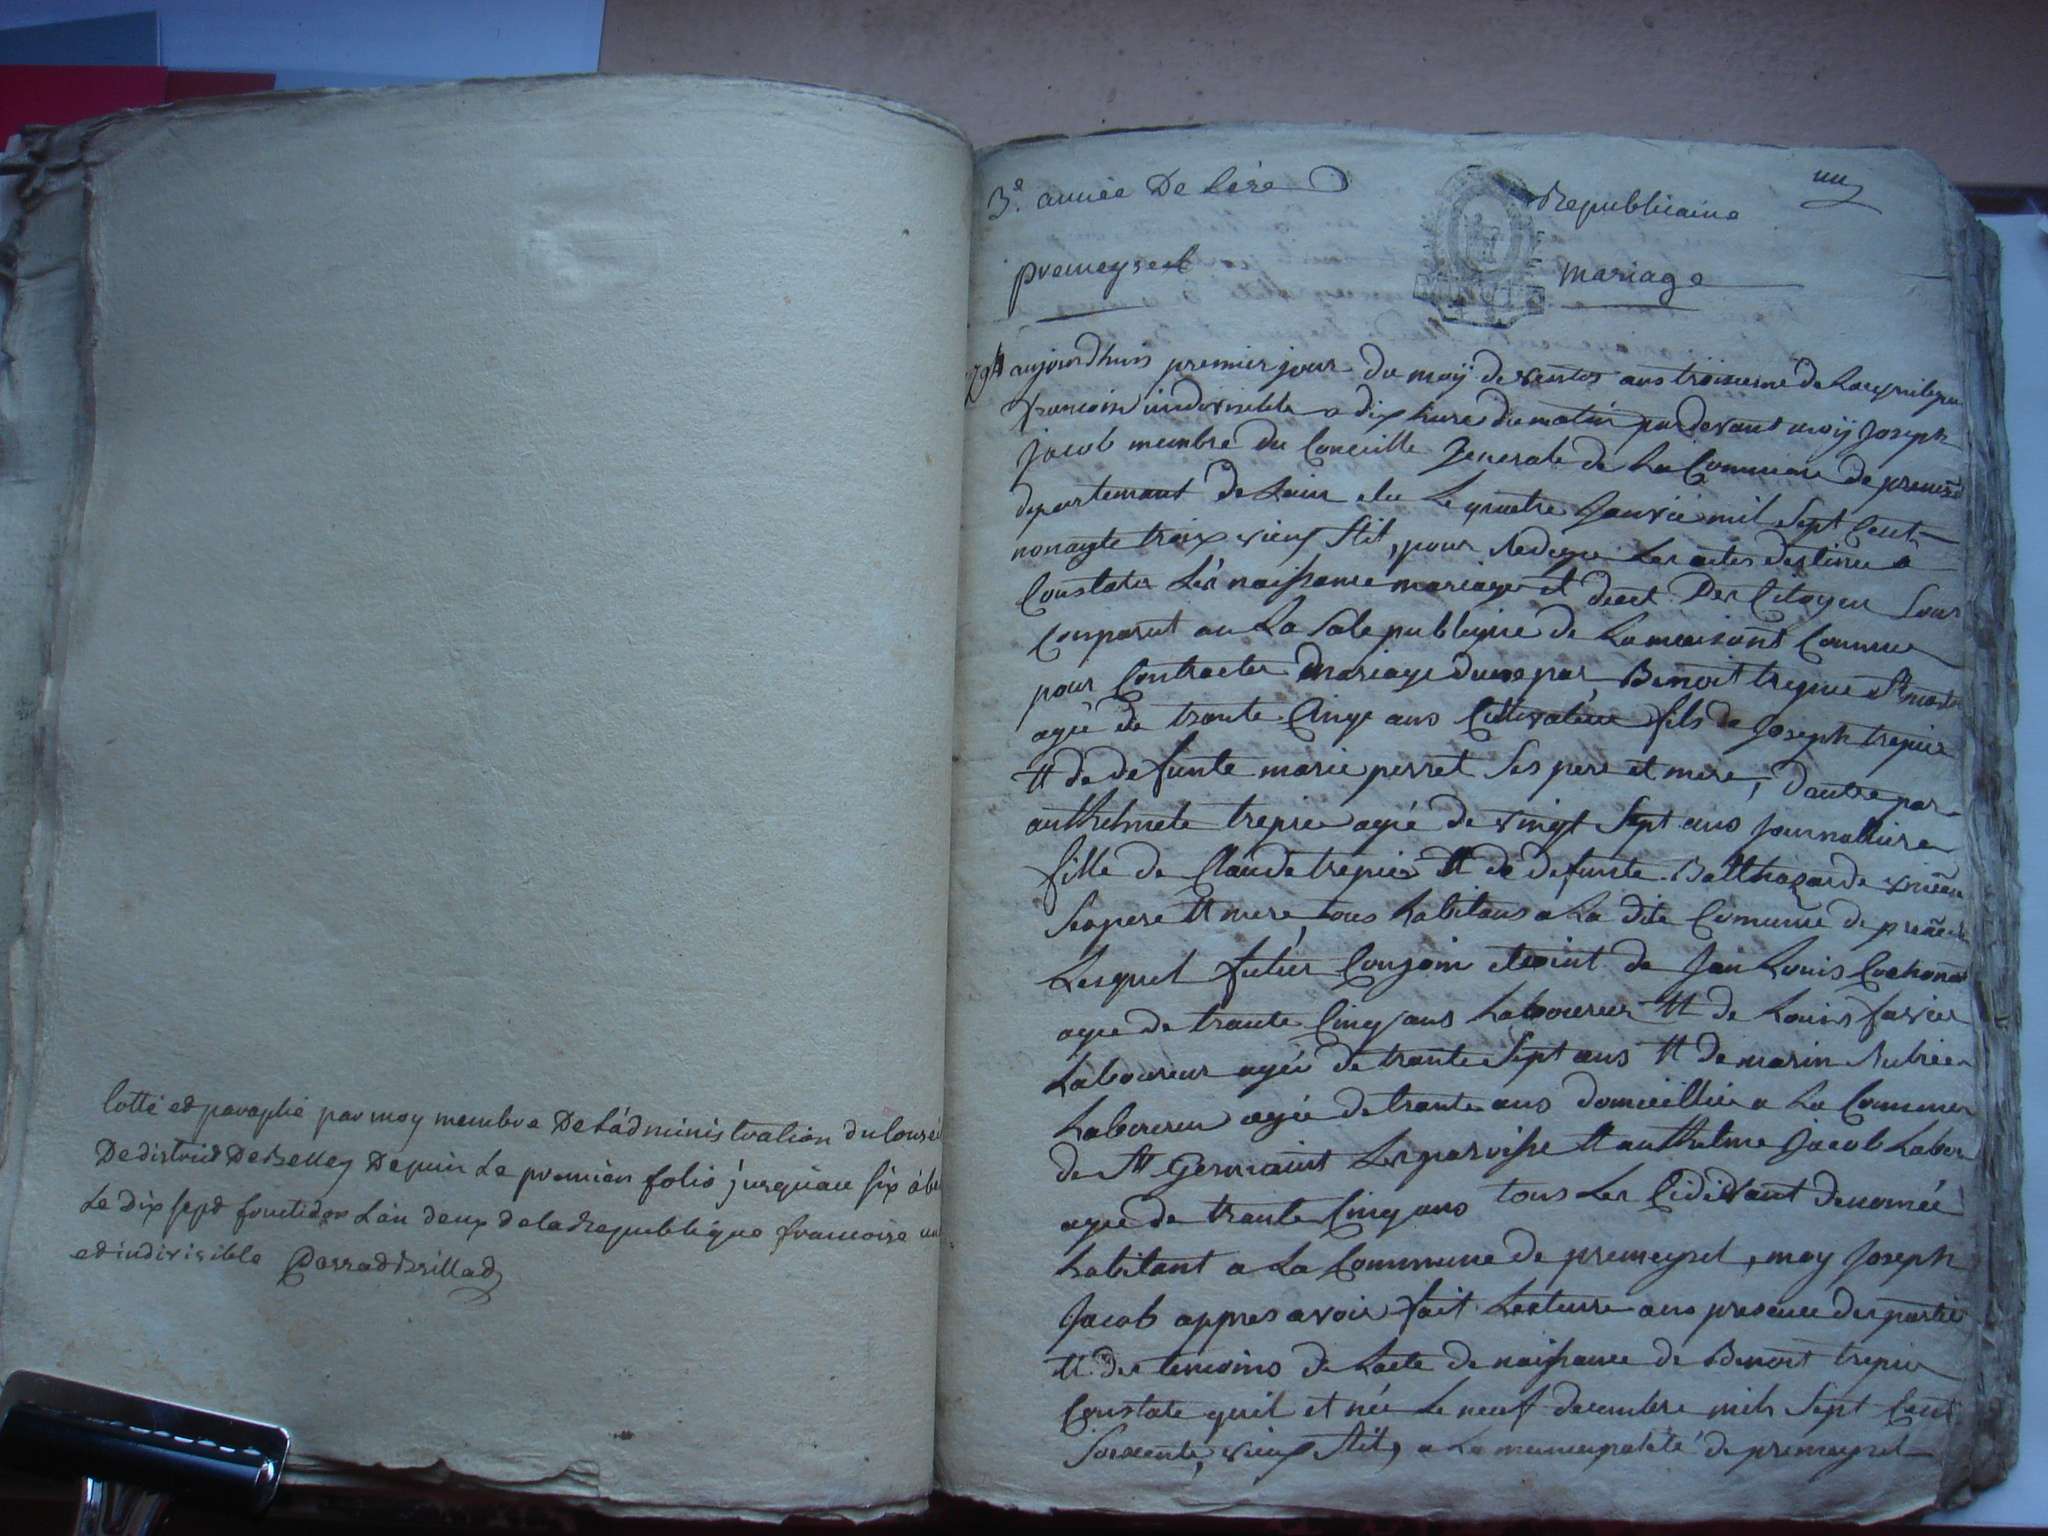 Cotté et paraphé par moy membre De L'administration du Conseil
De district De Belley Depuis Le premier folio jusqu'au six à
Le dix sept fructidor L'an deux de la Republique francoise une
et indivisible
3e. année De Lére Republicaine
premeysel mariage
aujourdhuis premier jour du moÿ de ventos ans troisieme de La
francoise indivisible a dix hure du matin par devant moÿ Joseph
Jacob membre du Conceille Jenerale de La Commune de
departemant de Lain elu Le quatre Janvié mil sept Cent
nonante troix vieux stil, pour Redigé Les actes destiné a
Constater Les naissance mariage et decet Des Citoyen Sons
Conparut au La Sale publique de La maisont Commune
pour Contracter mariage dune par Benoit trepie
agé de trante Cinq ans Cultivateur fils de Joseph trepier
et de defunte marie perret Ses pere et mere, dautre par
anthelmete trepie agé de vingt Sept ans Journalliere
fille de Claude trepier et de defunte Balthazarde
Ses pere et mere, tous habitans a La dite Commune de
Lesquel futur Conjoin etoint de Jan Louis Cochonat
agé de trante Cinq ans Laboureur et de Louis favier
Laboureur agée de trante Sept ans et de marin
Laboureur agée de trante ans domicillié a La Commune
de st Germaint Les paroisse et anthelme Jacob Labour
agé de trante Cinq ans tous Les Cidevant denomée
habitant a La Commune de premeysel, moy Joseph
Jacob appres avoir fait Lecturre ans presence des partie
et des temoins de Lacte de naissance de Benoit trepier
Constate quil et née Le neuf decembre mils Sept Cent
Soixente, vieux stil, a La municipalité de premeysel